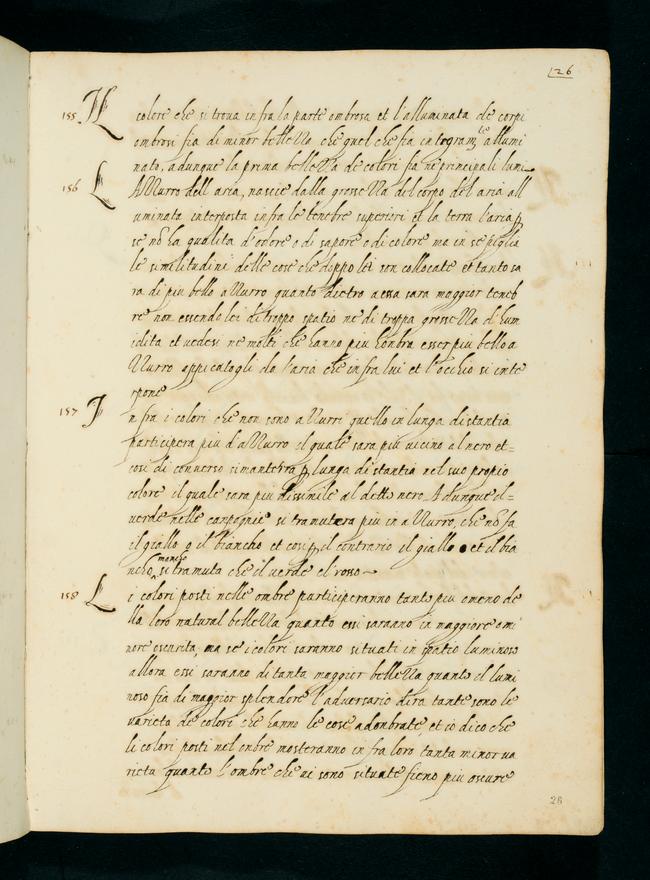 126
155 Il colore che si trova in fra la parte ombrosa et l'alluminata de corpi
ombrosi fia di minor bellezza che quel che fia integram.te allumi
nato, adunque la prima bellezza de colori fia ne principali lumi
156 L Azzurro dell aria, nascie dalla grossezza del corpo del aria all
uminata interposta infra le tenebre superiori et la terra l'aria p
se nō ha qualita d'odore o di sapore o di colore ma in se piglia
le similitudini delle cose che doppo lei son collocate et tanto sa
ra di piu bello azzurro quanto dietro a essa sara maggior teneb
re non essendo lei di troppo spatio ne di troppa grossezza d'hum
idita et vedesi ne molti che hanno piu hombra esser piu bello a
zzurro oppicatogli da l'aria che in fra lui et l'occhio si inte
rpone
157 In fra i colori che non sono azzurri quello in lunga distantia
participera piu d'azzurro il quale sara piu vicino al nero et=
cosi di converso si manterra p lunga distantia nel suo proprio
colore il quale sara piu dissimile al detto nero Adunque il=
verde nelle campagnie si tramutera piu in azzurro, che nō fa
il giallo o il biancho et cosi p il contrario il giallo et il bia
ncho mancho si tramuta che il verde el rosso~
158 Li colori posti nelle ombre participeranno tanto piu o meno de
lla loro natural bellezza quanto essi saranno in maggiore o mi
nore oscurita, ma se i colori saranno situati in spatio luminoso
allora essi saranno di tanta maggior bellezza quanto il lumi
noso fia di maggior splendore l'adversario dira tante sono le
varieta de colori che hanno le cose adonbrate et io dico che
li colori posti nel onbre mosteranno in fra loro tanta minor va
rieta quanto l'ombre che vi sono situate fieno piu oscure
28